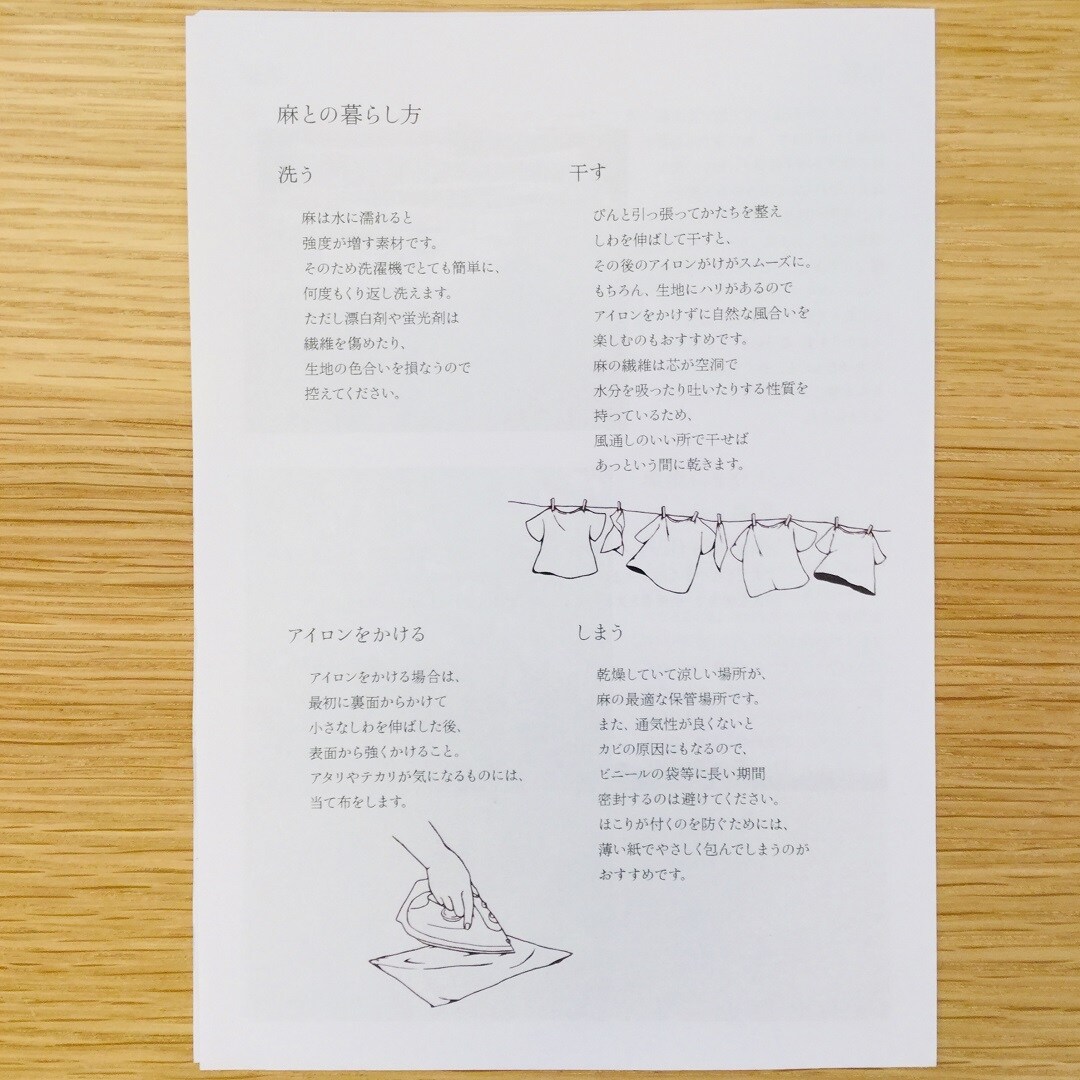 麻との暮らし方
洗う
麻は水に濡れると
強度が増す素材です。
そのため洗濯機でとても簡単に、
何度もくり返し洗えます。
ただし漂白剤や蛍光剤は
繊維を傷めたり、
生地の色合いを損なうので
控えてください。
干す
ぴんと引っ張ってかたちを整え
しわを伸ばして干すと、
その後のアイロンがけがスムーズに。
もちろん、生地にハリがあるので
アイロンをかけずに自然な風合いを
楽しむのもおすすめです。
麻の繊維は芯が空洞で
水分を吸ったり吐いたりする性質を
持っているため、
風通しのいい所で干せば
あっという間に乾きます。
アイロンをかける
アイロンをかける場合は、
最初に裏面からかけて
小さなしわを伸ばした後、
表面から強くかけること。
アタリやテカリが気になるものには、
当て布をします。
しまう
乾燥していて涼しい場所が、
麻の最適な保管場所です。
また、通気性が良くないと
カビの原因にもなるので、
ビニールの袋等に長い期間
密封するのは避けてください。
ほこりが付くのを防ぐためには、
薄い紙でやさしく包んでしまうのが
おすすめです。